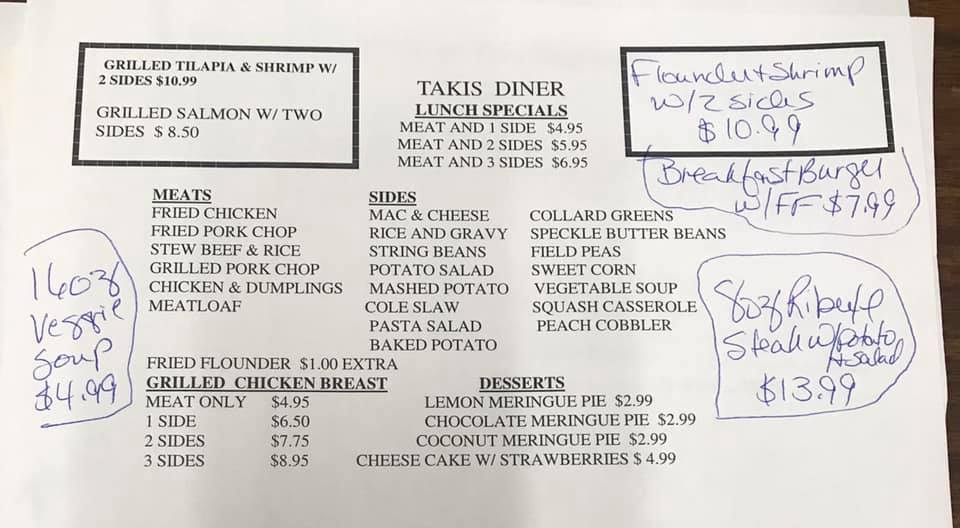 GRILLED TILAPIA & SHRIMP W/
2 SIDES $10.99
GRILLED SALMON W/ TWO
SIDES $ 8.50
TAKIS DINER
LUNCH SPECIALS
MEAT AND 1 SIDE $4.95
MEAT AND 2 SIDES $5.95
MEAT AND 3 SIDES $6.95
Flounder + Shrimp
w/2 sides
$10.99
Breakfast Burger
w/FF $7.99
MEATS
FRIED CHICKEN
FRIED PORK CHOP
STEW BEEF & RICE
GRILLED PORK CHOP
CHICKEN & DUMPLINGS
MEATLOAF
SIDES
MAC & CHEESE
RICE AND GRAVY
STRING BEANS
POTATO SALAD
MASHED POTATO
COLE SLAW
PASTA SALAD
BAKED POTATO
COLLARD GREENS
SPECKLE BUTTER BEANS
FIELD PEAS
SWEET CORN
VEGETABLE SOUP
SQUASH CASSEROLE
PEACH COBBLER
16oz
Veggie
Soup
$4.99
8oz Ribeye
Steak w/potato
+ salad
$13.99
FRIED FLOUNDER $1.00 EXTRA
GRILLED CHICKEN BREAST
MEAT ONLY $4.95
1 SIDE $6.50
2 SIDES $7.75
3 SIDES $8.95
DESSERTS
LEMON MERINGUE PIE $2.99
CHOCOLATE MERINGUE PIE $2.99
COCONUT MERINGUE PIE $2.99
CHEESE CAKE W/ STRAWBERRIES $ 4.99